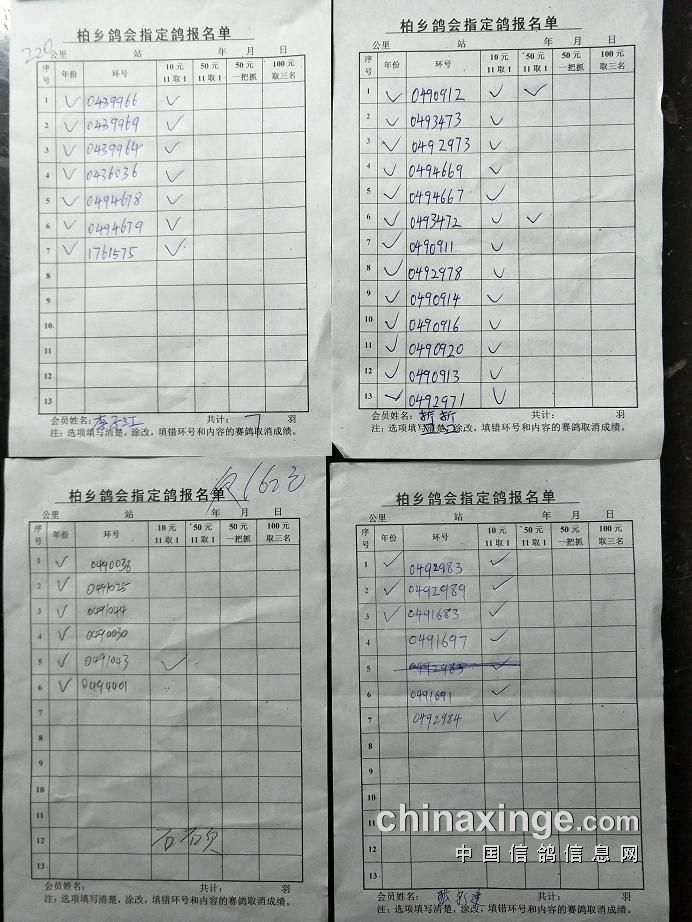 柏乡鸽会指定鸽报名单
220公里 站 年 月 日
序号 年份 环号 10元 11取1 50元 11取1 50元 一把抓 100元 取三名
1 ✓ 0439966 ✓
2 ✓ 0439969 ✓
3 ✓ 0439964 ✓
4 ✓ 0436036 ✓
5 ✓ 0494678 ✓
6 ✓ 0494679 ✓
7 ✓ 1761575 ✓
8
9
10
11
12
13
会员姓名: 共计: 7 羽
注: 选项填写清楚, 涂改, 填错环号和内容的赛鸽取消成绩。
柏乡鸽会指定鸽报名单
公里 站 年 月 日
序号 年份 环号 10元 11取1 50元 11取1 50元 一把抓 100元 取三名
1 ✓ 0490912 ✓ ✓
2 ✓ 0493473 ✓
3 ✓ 0492973 ✓
4 ✓ 0494669 ✓
5 ✓ 0494667 ✓
6 ✓ 0493472 ✓ ✓
7 ✓ 0490911 ✓
8 ✓ 0492978 ✓
9 ✓ 0490914 ✓
10 ✓ 0490916 ✓
11 ✓ 0490920 ✓
12 ✓ 0490913 ✓
13 ✓ 0492971 ✓
会员姓名: 共计: 羽
注: 选项填写清楚, 涂改, 填错环号和内容的赛鸽取消成绩。
柏乡鸽会指定鸽报名单
公里 站 年 月 日
序号 年份 环号 10元 11取1 50元 11取1 50元 一把抓 100元 取三名
1 ✓ 0490038
2 ✓ 0491025
3 ✓ 0491044
4 ✓ 0490030
5 ✓ 0491043 ✓
6 ✓ 0494401
7
8
9
10
11
12
13
会员姓名: 共计: 羽
注: 选项填写清楚, 涂改, 填错环号和内容的赛鸽取消成绩。
柏乡鸽会指定鸽报名单
公里 站 年 月 日
序号 年份 环号 10元 11取1 50元 11取1 50元 一把抓 100元 取三名
1 ✓ 0492983 ✓
2 ✓ 0492989 ✓
3 ✓ 0491683 ✓
4 0491697 ✓
5 0492983 ✓
6 0491691 ✓
7 0492984 ✓
8
9
10
11
12
13
会员姓名: 共计: 羽
注: 选项填写清楚, 涂改, 填错环号和内容的赛鸽取消成绩。
chinaxinge.com
中国信鸽信息网